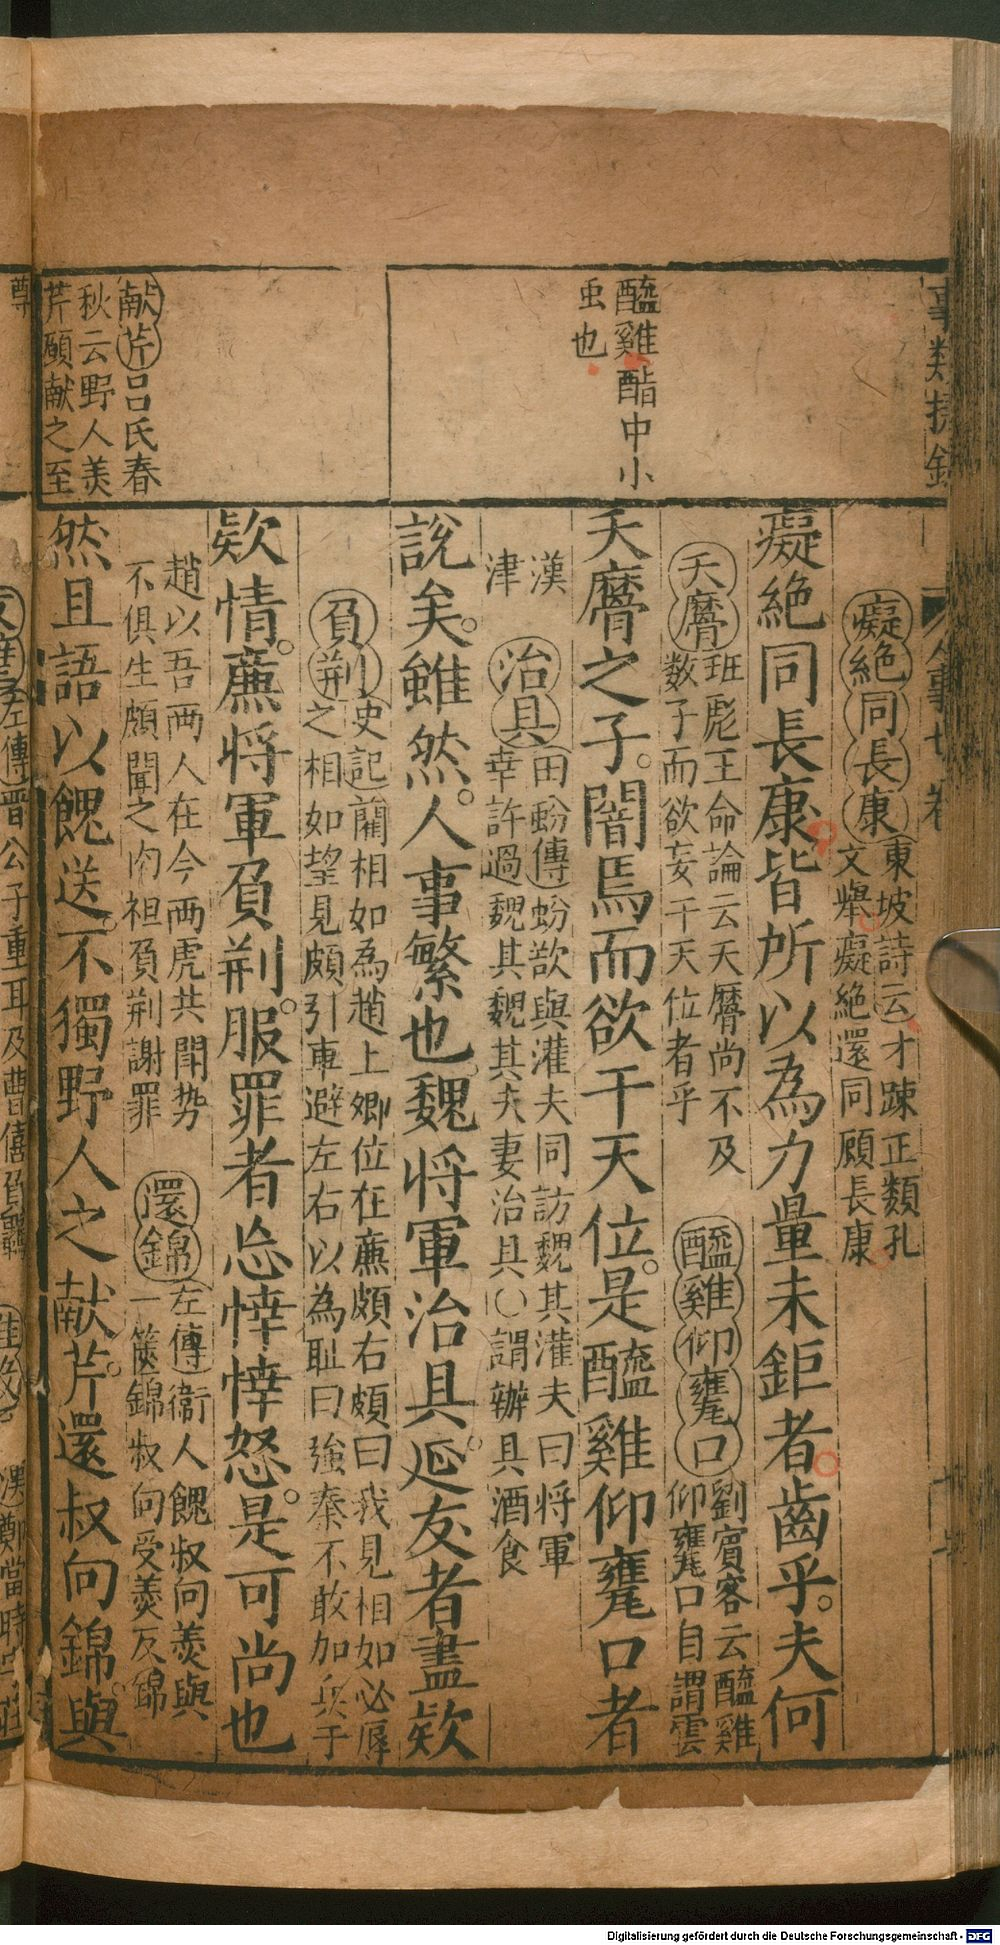 事類捷錄
人事七卷
醯雞酯中小
虫也
献芹吕氏春
秋云野人羙
芹願献之至
癡絶同長康
東坡詩云才踈正類孔
文舉癡絶還同顧長康
癡絶同長康皆所以為力量未鉅者齒乎夫何
天曆
班彪王命論云天曆尚不及
数子而欲妄干天位者乎
醯雞仰甕口
劉賓客云醯雞
仰甕口自謂雲
天曆之子闇焉而欲干天位是醯雞仰甕口者
漢
津
治具
田蚡傳蚡欲與灌夫同訪魏其灌夫曰将軍
幸許過魏其魏其夫妻治具〇謂辦具酒食
說矣雖然人事繁也魏将軍治具延友者盡欵
負荆
史記藺相如為趙上卿位在廉頗右頗曰我見相如必辱
之相如望見頗引車避左右以為耻曰強秦不敢加兵于
欵情廉将軍負荆服罪者忘悻悻怒是可尚也
趙以吾両人在今両虎共鬥势
不俱生頗聞之肉袒負荆謝罪
還錦
左傳衞人餽叔向羹與
一箧錦叔向受羹反錦
然且語以餽送不獨野人之献芹還叔向錦與
左傳晋公子重耳及曹僖負羈
鄭當時
Digitalisierung gefördert durch die Deutsche Forschungsgemeinschaft - DFG